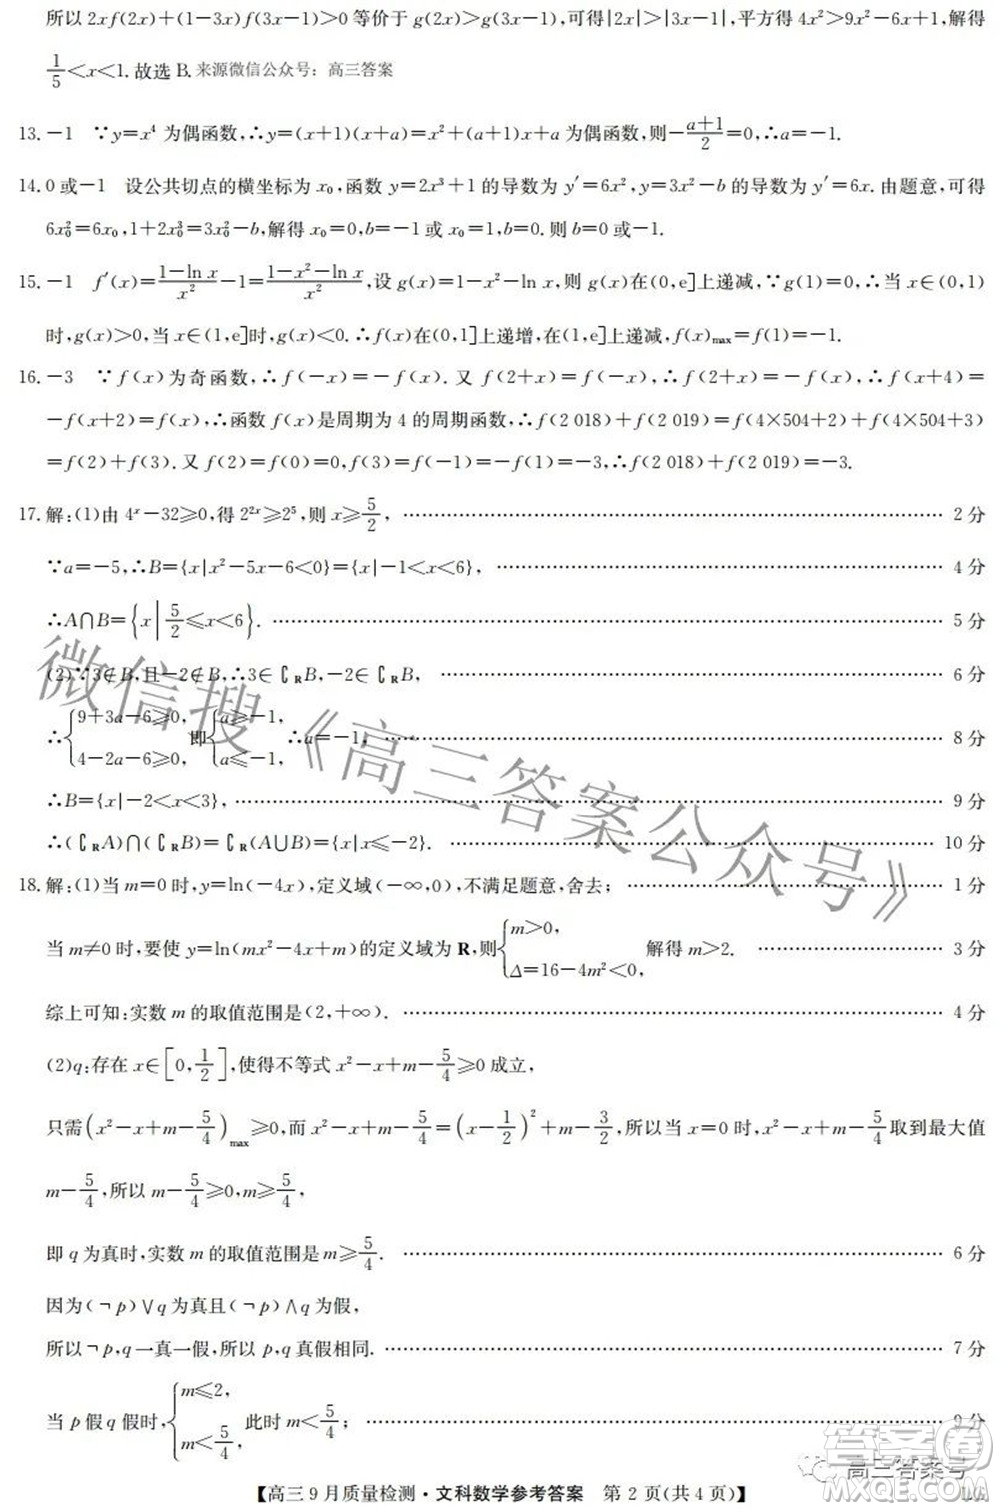 所以 2xf(2x)+(1-3x)f(3x-1)>0 等价于 g(2x)>g(3x-1),可得|2x|>|3x-1|,平方得 4x²>9x²-6x+1,解得
1/5<x<1.故选 B. 来源微信公众号：高三答案
13.-1 ∵y=x⁴ 为偶函数,∴y=(x+1)(x+a)=x²+(a+1)x+a 为偶函数,则-(a+1)/2=0,∴a=-1.
14.0 或-1 设公共切点的横坐标为 x₀,函数 y=2x³+1 的导数为 y′=6x²,y=3x²-b 的导数为 y′=6x.由题意,可得
6x₀²=6x₀,1+2x₀³=3x₀²-b,解得 x₀=0,b=-1 或 x₀=1,b=0.则 b=0 或-1.
15.-1 f′(x)=(1-ln x)/x²-1=(1-x²-ln x)/x²,设 g(x)=1-x²-ln x,则 g(x)在(0,e]上递减,∵g(1)=0,∴当 x∈(0,1)
时,g(x)>0,当 x∈(1,e]时,g(x)<0.∴f(x)在(0,1]上递增,在(1,e]上递减,f(x)max=f(1)=-1.
16.-3 ∵f(x)为奇函数,∴f(-x)=-f(x).又 f(2+x)=f(-x),∴f(2+x)=-f(x),∴f(x+4)=
-f(x+2)=f(x),∴函数 f(x)是周期为 4 的周期函数,∴f(2 018)+f(2 019)=f(4×504+2)+f(4×504+3)
=f(2)+f(3).又 f(2)=f(0)=0,f(3)=f(-1)=-f(1)=-3,∴f(2 018)+f(2 019)=-3.
17.解:(1)由 4ˣ-32≥0,得 2²ˣ≥2⁵,则 x≥5/2, …… 2 分
∵a=-5,∴B={x|x²-5x-6<0}={x|-1<x<6}, …… 4 分
∴A∩B={x|5/2≤x<6}. …… 5 分
(2)∵3∉B,且-2∉B,∴3∈∁RB,-2∈∁RB, …… 6 分
∴{9+3a-6≥0, 4-2a-6≥0, 即{a≥-1, a≤-1, ∴a=-1, …… 8 分
∴B={x|-2<x<3}, …… 9 分
∴(∁RA)∩(∁RB)=∁R(A∪B)={x|x≤-2}. …… 10 分
18.解:(1)当 m=0 时,y=ln(-4x),定义域(-∞,0),不满足题意,舍去; …… 1 分
当 m≠0 时,要使 y=ln(mx²-4x+m)的定义域为 R,则{m>0, Δ=16-4m²<0, 解得 m>2. …… 3 分
综上可知:实数 m 的取值范围是(2,+∞). …… 4 分
(2)q:存在 x∈[0,1/2],使得不等式 x²-x+m-5/4≥0 成立,
只需(x²-x+m-5/4)max≥0,而 x²-x+m-5/4=(x-1/2)²+m-3/2,所以当 x=0 时,x²-x+m-5/4取到最大值
m-5/4,所以 m-5/4≥0,m≥5/4,
即 q 为真时,实数 m 的取值范围是 m≥5/4. …… 6 分
因为(¬p)∨q 为真且(¬p)∧q 为假,
所以¬p,q 一真一假,所以 p,q 真假相同. …… 7 分
当 p 假 q 假时,{m≤2, m<5/4, 此时 m<5/4; …… 9 分
【高三9月质量检测·文科数学参考答案 第 2 页(共 4 页)】
微信搜《高三答案公众号》
高三答案号
答案圈